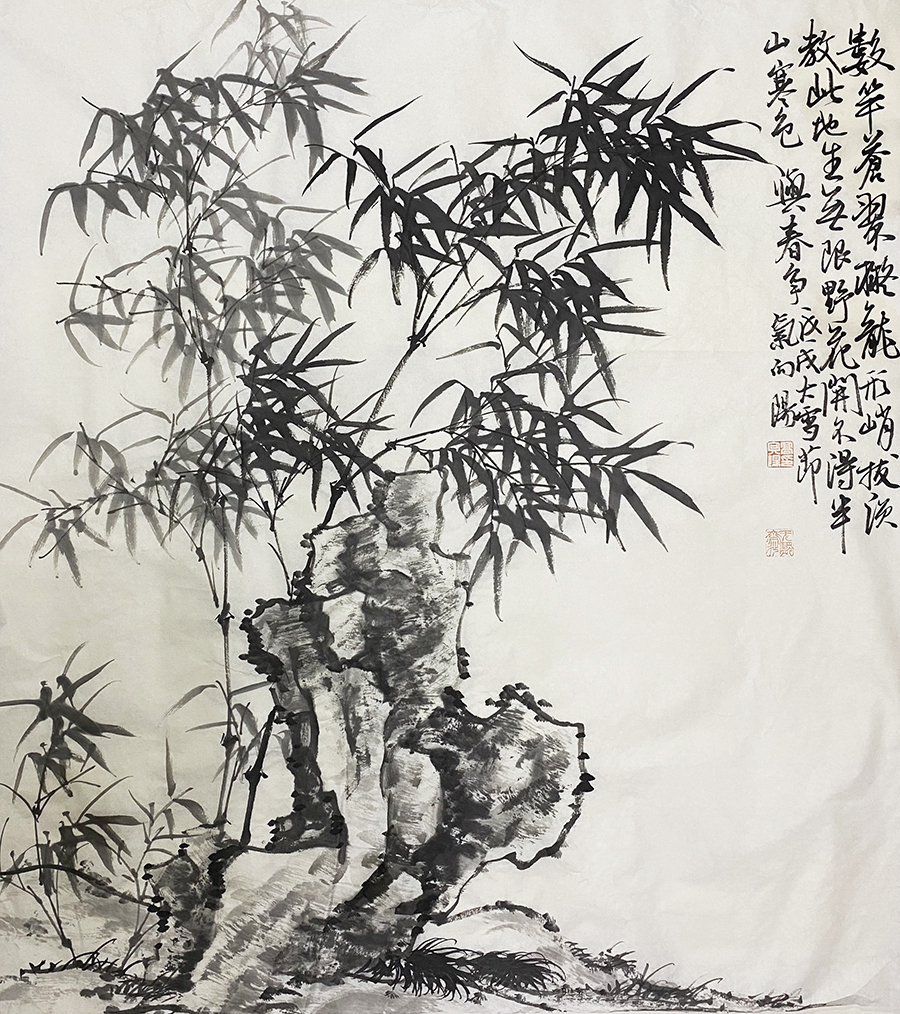 數竿蒼翠擬龍形峭拔須
教此地生無限野花開不得半
山寒色與春爭
戊戌大雪節
氣向陽